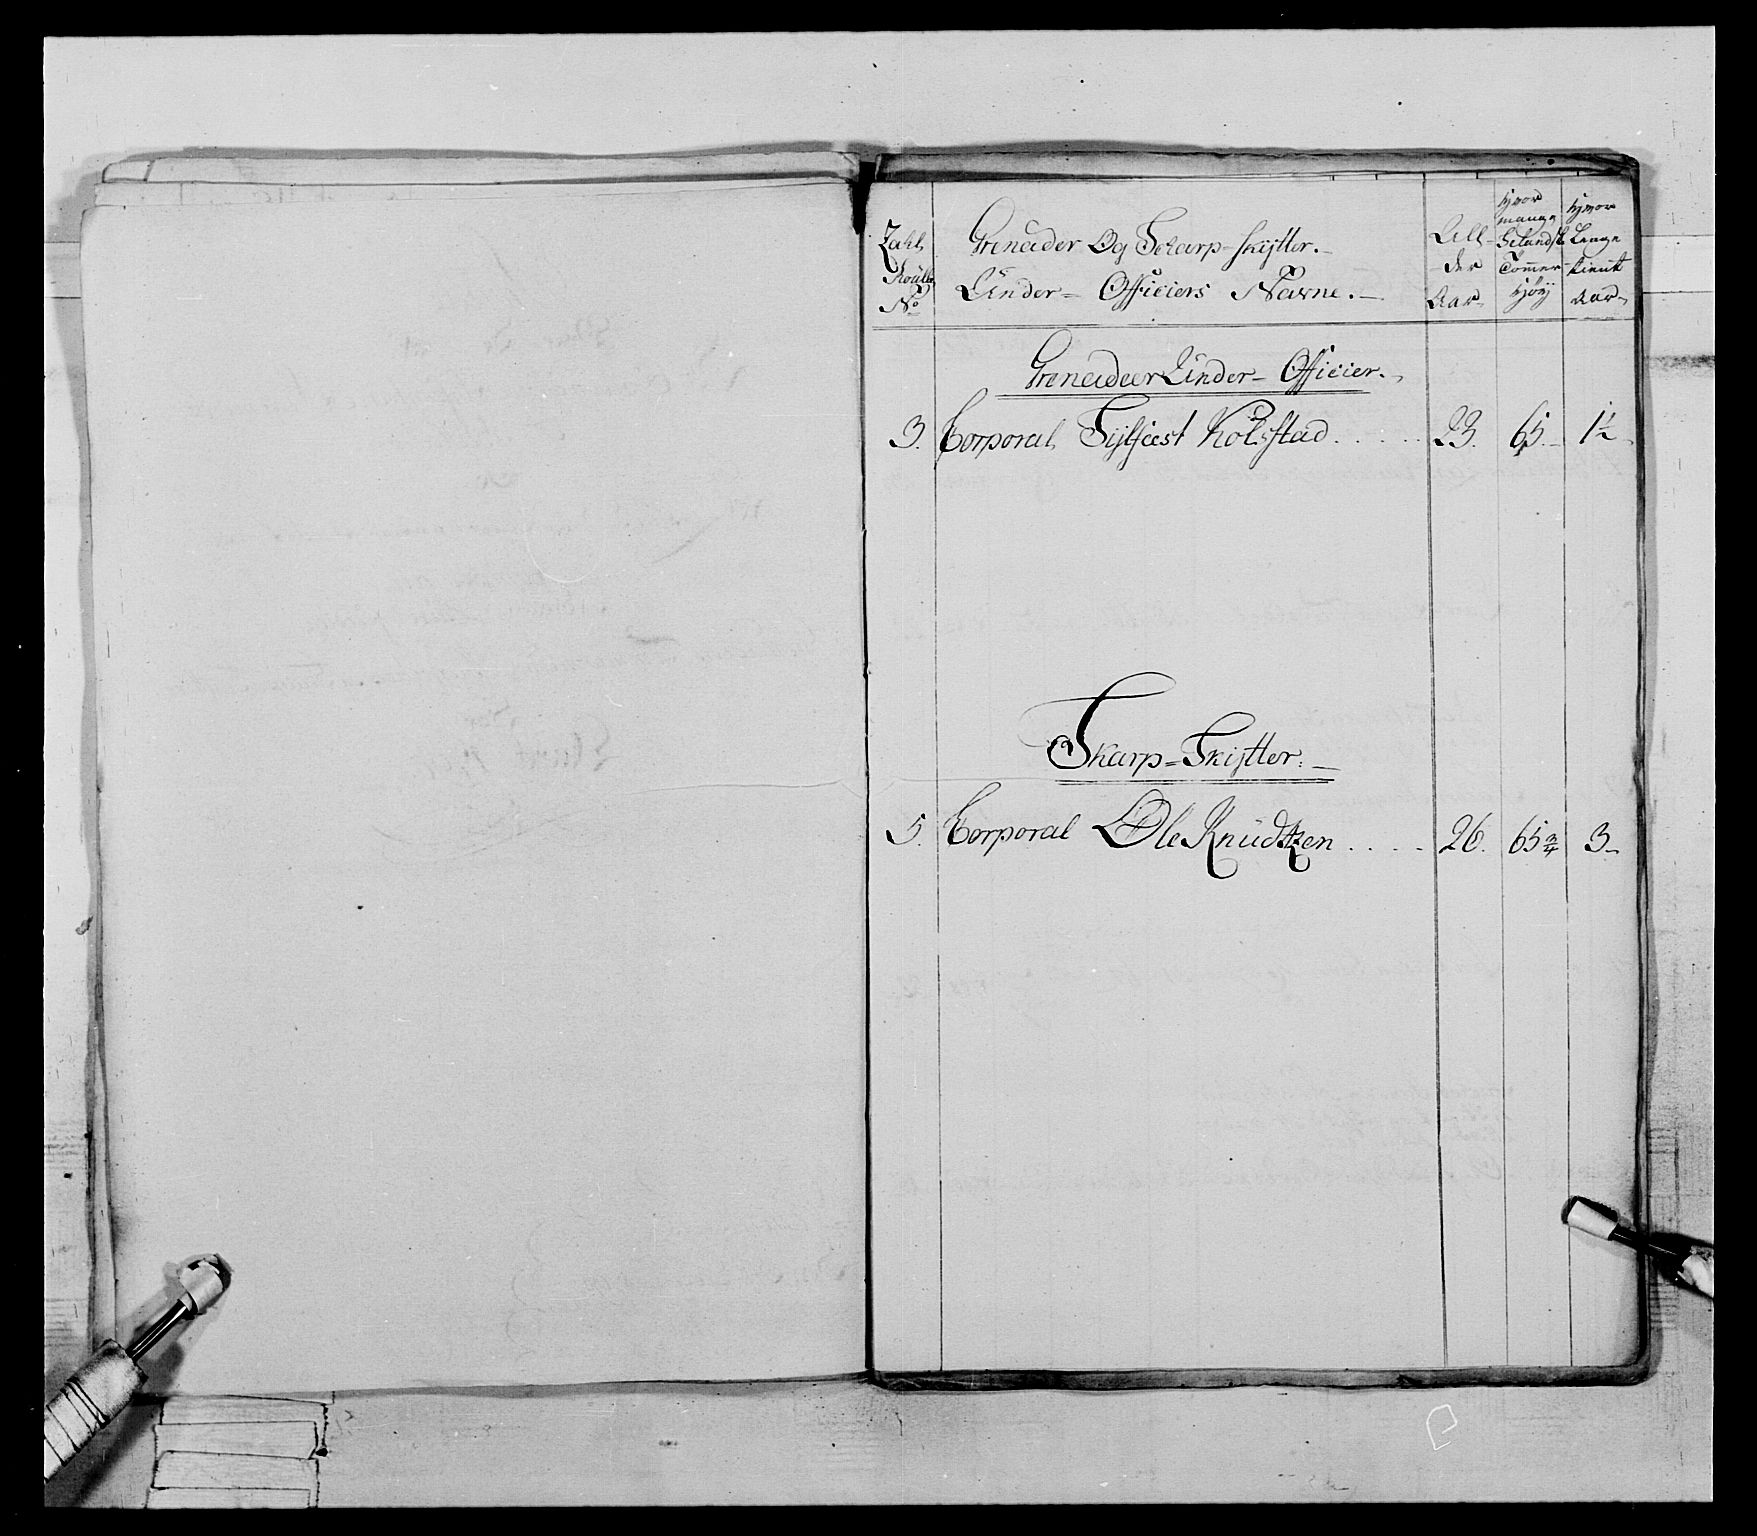 Zahl Roulle No
Grenader Og Scharp-skytter.
Under- Officiers Navne.
All- der Aar
hvor mange Tommer høy
hvor Lenge tient Aar
Grenadeer Under- Officier.
3. Corporal Sylfest Kolsstad . . . . . 23. 65. 1½
Skarp-Skytter.
5. Corporal Ole Knudtzen . . . . 26. 65¾ 3